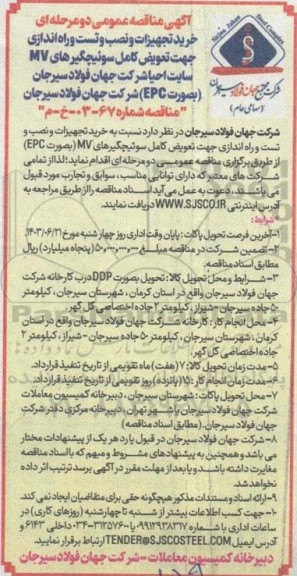 آگهی مناقصه عمومی دو مرحله ای
خرید تجهیزات و نصب و تست و راه اندازی
جهت تعویض کامل سوئیچگیر های MV
سایت احیا شرکت جهان فولاد سیرجان
(بصورت EPC) شرکت جهان فولاد سیرجان
"مناقصه شماره ۶۷-۰۳-خ-م"
شرکت مجتمع جهان فولاد سیرجان
(سهامی عام)
شرکت جهان فولاد سیرجان در نظر دارد نسبت به خرید تجهیزات و نصب و
تست و راه اندازی جهت تعویض کامل سوئیچگیرهای MV (بصورت EPC)
از طریق برگزاری مناقصه عمومی دو مرحله ای اقدام نماید؛ لذا از تمامی
شرکت های معتبر که دارای توانایی مناسب، سوابق و تجارب مورد قبول
می باشند، دعوت به عمل می آید اسناد مناقصه را از طریق مراجعه به
آدرس اینترنتی WWW.SJSCO.IR دریافت نمایند.
*شرایط:
۱-آخرین فرصت تحویل پاکات: پایان وقت اداری روز چهار شنبه مورخ ۱۴۰۳/۰۶/۲۱.
۲-تضمین شرکت در مناقصه مبلغ ۵۰,۰۰۰,۰۰۰,۰۰۰ (پنجاه میلیارد) ریال
مطابق اسناد مناقصه.
۳- شرایط و محل تحویل کالا: تحویل بصورت DDP درب کارخانه شرکت
جهان فولاد سیرجان واقع در استان کرمان، شهرستان سیرجان، کیلومتر
۵۰ جاده سیرجان-شیراز، کیلومتر ۲ جاده اختصاصی گل گهر.
۴- محل انجام کار: کارخانه شرکت جهان فولاد سیرجان واقع در استان
کرمان، شهرستان سیرجان، کیلومتر ۵۰ جاده سیرجان - شیراز، کیلومتر ۲
جاده اختصاصی گل گهر.
۵-مدت زمان تحویل کالا: ۷ (هفت) ماه تقویمی از تاریخ تنفیذ قرارداد.
۶-مدت زمان انجام کار: ۱۵ (پانزده) روز تقویمی از تاریخ تنفیذ قرارداد.
۷- محل تحویل پاکات: شهرستان سیرجان، دبیرخانه کمیسیون معاملات
شرکت جهان فولاد سیرجان یا شهر تهران، دبیرخانه مرکزی دفتر شرکت
جهان فولاد سیرجان. (مطابق اسناد مناقصه)
۸- شرکت جهان فولاد سیرجان در قبول یا رد هر یک از پیشنهادات مختار
می باشد و همچنین به پیشنهادهای مشروط و مبهم که با اسناد مناقصه
مغایرت داشته باشند و یا بعد از مهلت مقرر در آگهی برسد ترتیب اثر داده
نخواهد شد.
۹-ارائه اسناد و مستندات مذکور هیچگونه حقی برای متقاضیان ایجاد نمی کند.
۱۰- جهت کسب اطلاعات بیشتر از شنبه تا چهارشنبه (روزهای کاری) در
ساعات اداری با شماره ۰۹۹۱۲۹۳۸۳۱۷ یا ۰۳۴-۳۱۲۵۷۶۰ داخلی ۶۱۴۳ و
آدرس ایمیل TENDER@SJSCOSTEEL.COM ارتباط برقرار نمایید.
دبیرخانه کمیسیون معاملات - شرکت جهان فولاد سیرجان